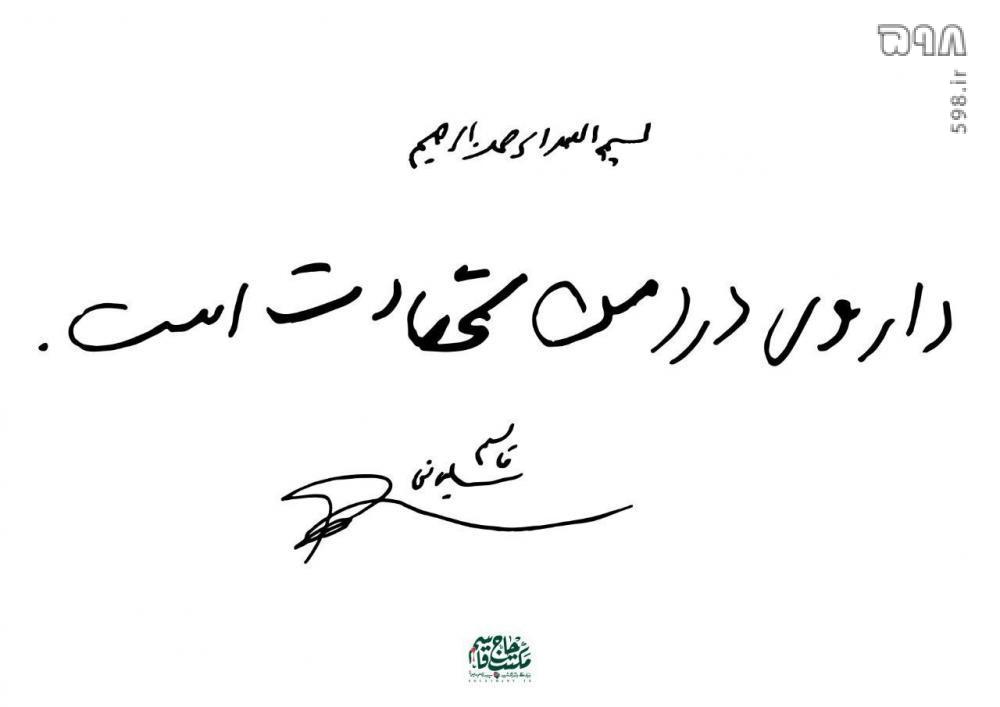 ۵۹۸
598.ir
بسم الله الرحمن الرحیم
داروی درد من شهادت است.
قاسم
سلیمانی
مکتب حاج قاسم